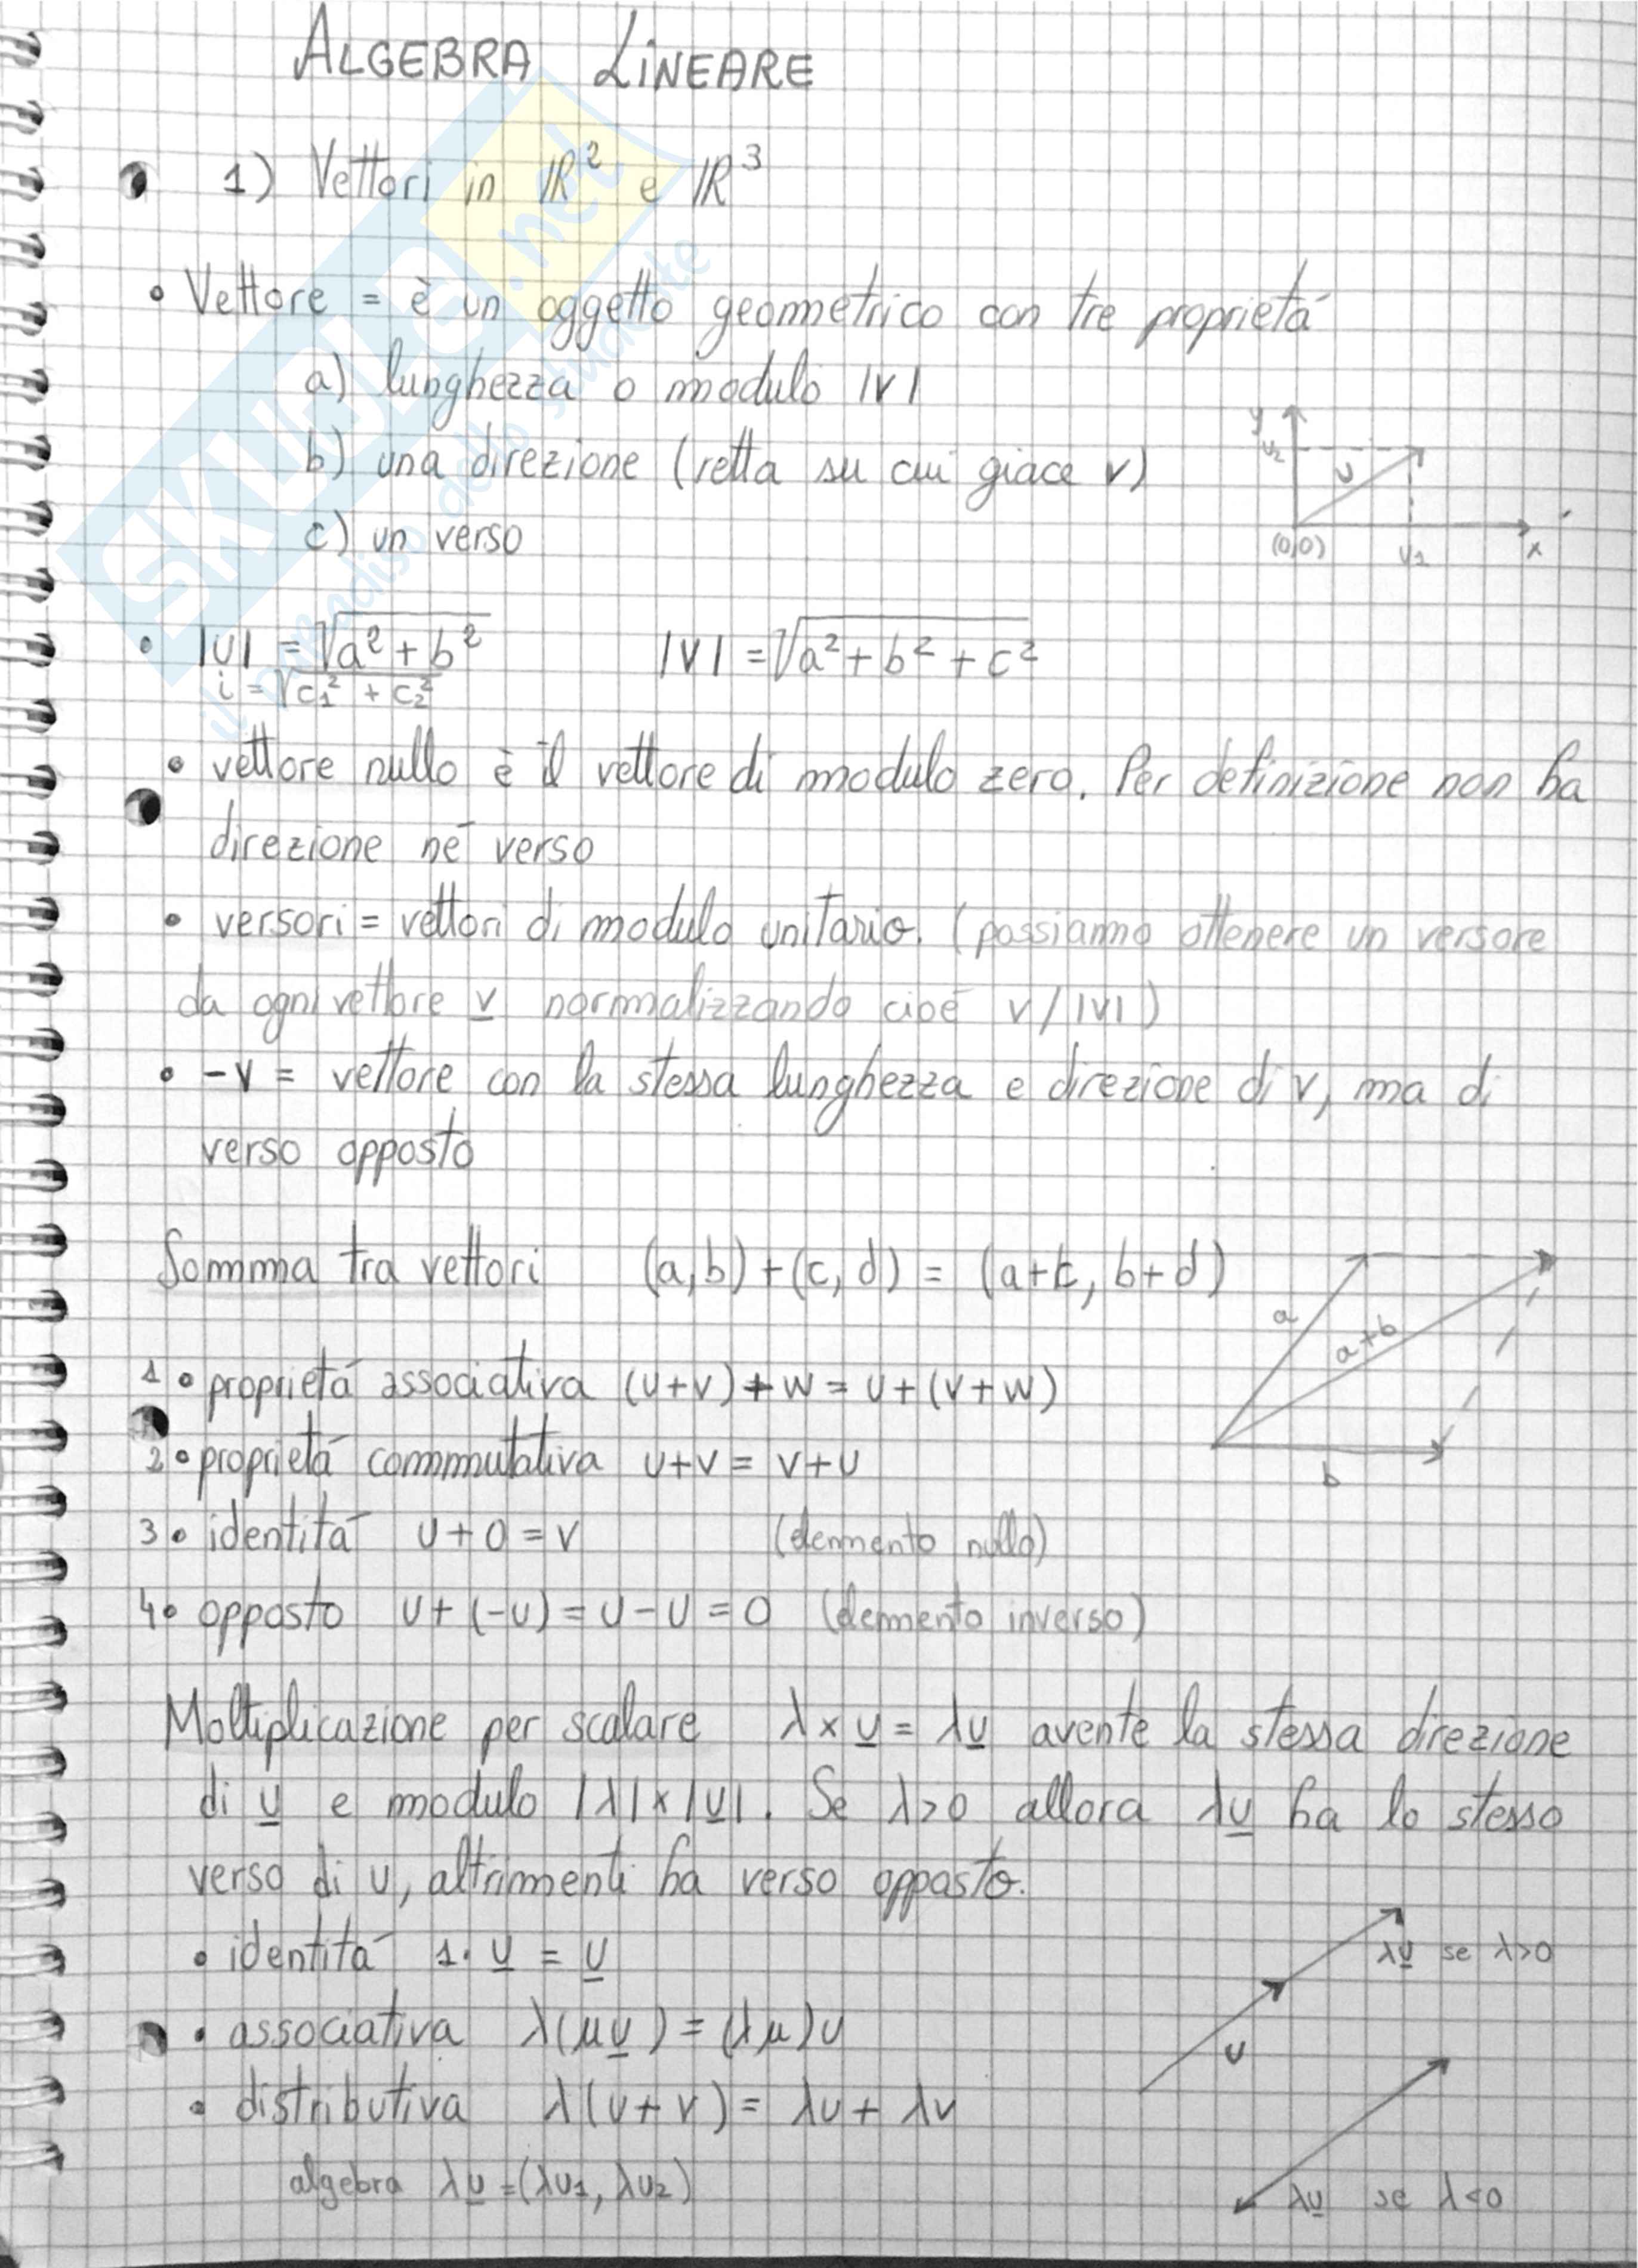 ALGEBRA LINEARE
1) Vettori in ℝ² e ℝ³
• Vettore = è un oggetto geometrico con tre proprietá
a) lunghezza o modulo |v|
b) una direzione (retta su cui giace v)
c) un verso
y
u₂
u
(0,0)
u₁
x
• |u| = √a² + b²
|v| = √a² + b² + c²
i = √c₁² + c₂²
• vettore nullo è il vettore di modulo zero. Per definizione non ha
direzione né verso
• versori = vettori di modulo unitario. (possiamo ottenere un versore
da ogni vettore v normalizzando cioé v/|v|)
• -v = vettore con la stessa lunghezza e direzione di v, ma di
verso opposto
Somma tra vettori (a,b)+(c,d) = (a+c, b+d)
a
a+b
b
1• proprietá associativa (u+v)+w = u+(v+w)
2• proprietá commutativa u+v = v+u
3• identitá u+0 = v (elemento nullo)
4• opposto u+(-u) = u-u = 0 (elemento inverso)
Moltiplicazione per scalare λ × u = λu avente la stessa direzione
di u e modulo |λ|×|u|. Se λ>0 allora λu ha lo stesso
verso di u, altrimenti ha verso opposto.
• identitá 1· u = u
• associativa λ(μu) = (λμ)u
• distributiva λ(u+v) = λu + λv
algebra λu = (λu₁, λu₂)
λu se λ>0
u
λu se λ<0
SKUOLA.net
il paradiso dello studente